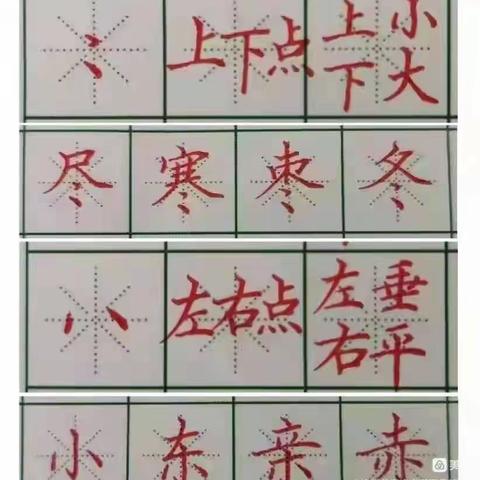 ⺀ 上下点 上小
下大
尽 寒 枣 冬
八 左右点 左垂
右平
小 东 亲 赤
美